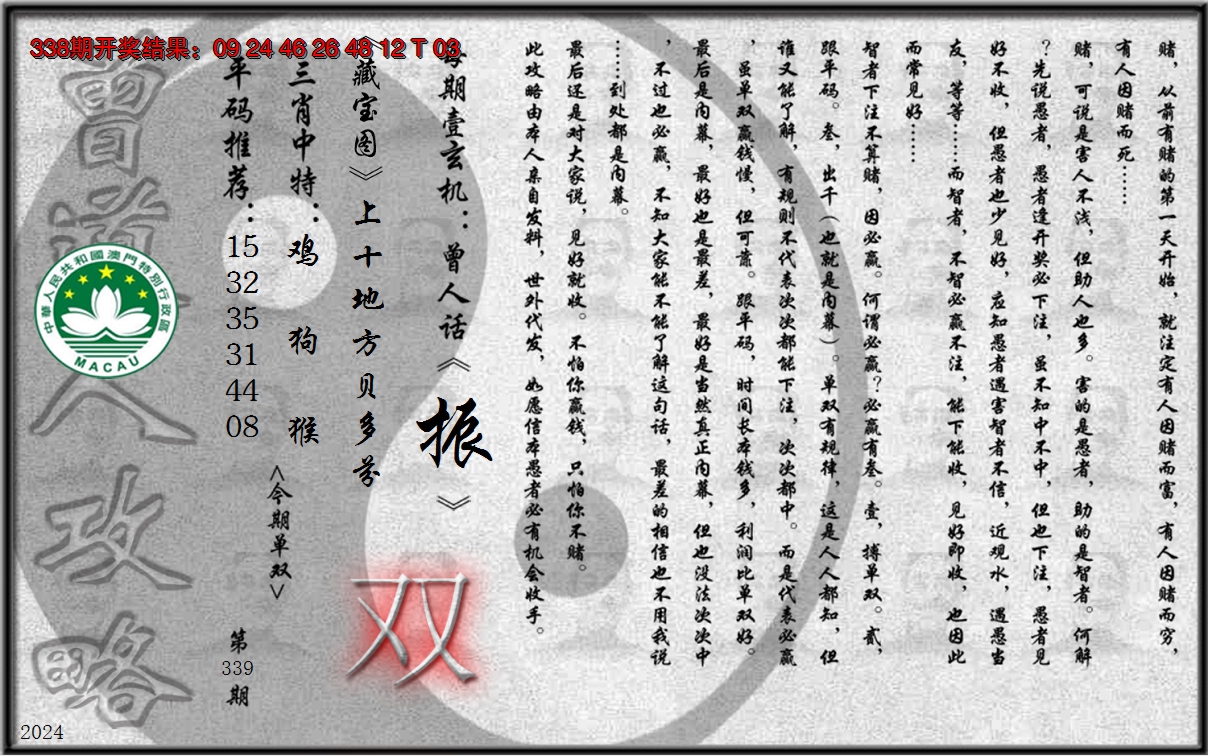 338期开奖结果：09 24 46 26 48 12 T 03
赌，从前有赌的第一天开始，就注定有人因赌而富，有人因赌而穷，
有人因赌而死……
赌，可说是害人不浅，但助人也多。害的是愚者，助的是智者。何解
？先说愚者，愚者逢开奖必下注，虽不知中不中，但也下注，愚者见
好不收，但愚者也少见好，应知愚者遇害智者不信，近观水，遇愚当
友，等等……而智者，不智必赢不注，能下能收，见好即收，也因此
而常见好……
智者下注不算赌，因必赢。何谓必赢？必赢有叁。壹，搏单双。贰，
跟平码。叁，出千（也就是内幕）。单双有规律，这是人人都知，但
谁又能了解，有规则不代表次次都能下注，次次都中。而是代表必赢
，虽单双赢钱慢，但可靠。跟平码，时间长本钱多，利润比单双好。
最后是内幕，最好也是最差，最好是当然真正内幕，但也没法次次中
，不过也必赢，不知大家能不能了解这句话，最差的相信也不用我说
……到处都是内幕。
最后还是对大家说，见好就收。不怕你赢钱，只怕你不赌。
此攻略由本人亲自发料，世外代发，如愿信本愚者必有机会收手。
每期壹玄机：曾人话《振》
《藏宝图》上十地方贝多芬
双
三肖中特：鸡 狗 猴
<今期单双>
平码推荐：15 32 35 31 44 08
第339期
曾道人攻略
中華人民共和國澳門特別行政區
MACAU
2024